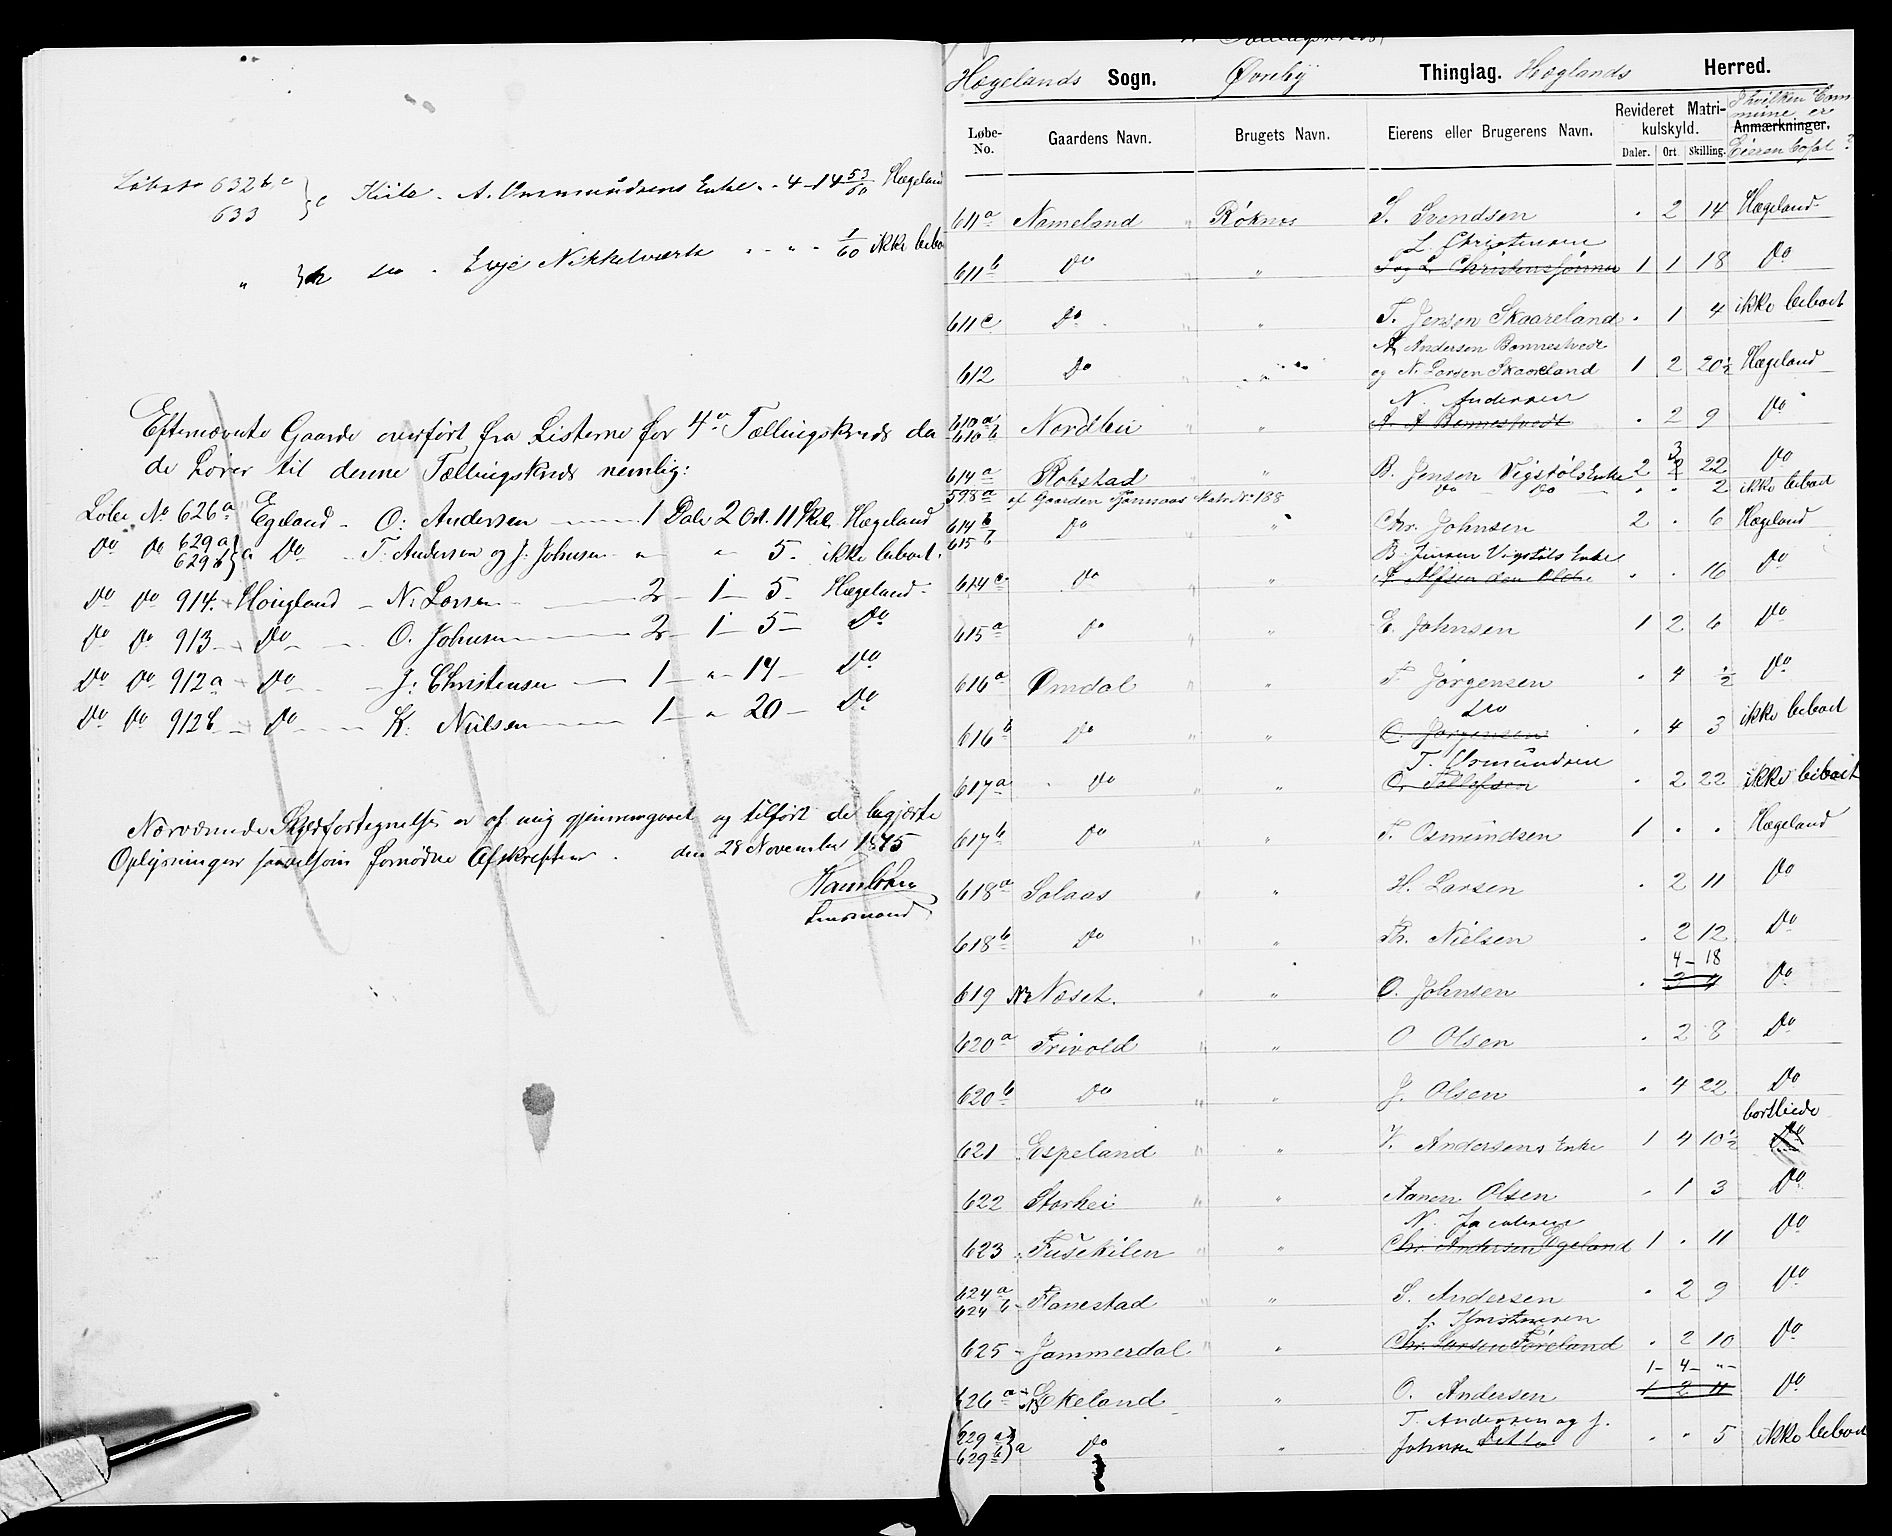 Løbeno 632 b,c } c Kile - A. Osmundsens Enke - 4 - 14 53/60 Hægeland
633
" } d do - Evje Nikkelværk - - " - 1/60 ikke bebo
Eftenævnte Gaarde overført fra Listerne for 4de Tællingskreds da
de hører til denne Tællingskreds nemlig:
Løbe No 626a Egeland - O: Andersen - 1 Daler 2 Ort. 11 Skil. Hægeland
Do Do 629a 629b } a Do - T. Andersen og J. Johnsen - " " 5 - ikke beboet.
Do Do 914. Hougland - N. Larsen - 2 - 1 - 5 - Hægeland -
Do Do 913 - Do - O. Johnsen - 2 - 1 - 5 - Do
Do Do 912a - Do - J: Christensen - 1 - " - 14 - Do
Do Do 912b - Do - K. Nielsen - 1 - " - 20 - Do
Nærværende Skyldfortegnelse er af mig gjennemgaaet og tilført de begjærte
Oplysninger saavelsom fornødne Afskrifter. den 28 November 1875
Lensmand
Hægelands Sogn. Øvreby Thinglag. Hæglands Herred.
Løbe-No. Gaardens Navn. Brugets Navn. Eierens eller Brugerens Navn. Revideret Matrikulskyld. Daler. Ort Skilling. Anmærkninger. I hvilken Commune er Eieren bosat?
611a Nameland " Røknes S. Svendsen . 2 14 Hægeland
L. Christensen
611b Do " T og L Christenssønner 1 1 18 Do
611c Do " " T. Jensen Skaareland . 1 4 ikke beboet
A. Andersen Bonnestvedt
612 Do " og N. Larsen Skaareland 1 2 20½ Hægeland
N. Andersen
610a 610b Nordhei " " A. A Bonnestvedt . 2 9 Do
3
614a Rokstad " B. Jensen Vigstøls Enke 2 2 22 Do
598a af Gaarden Tjomaas Matr. No 188 Do Do . . 2 ikke beboet
614b 615b Do " " Chr. Johnsen 2 . 6 Hægeland
B. Jensen Vigstøls Enke
614c Do " " . . 16 Do
615a Do " " E. Johnsen 1 2 6 Do
616a Omdal " " T. Jørgensen . 4 ½ Do
do
616b Do " " C. Jørgensen . 4 3 ikke beboet
T. Osmundsen
617a Do " " O. Tellefsen . 2 22 ikke beboet
617b Do " " T. Osmundsen 1 . . Hægeland
618a Solaas " " H. Larsen . 2 11 Do
618b Do " " Th. Nielsen . 2 12 Do
4 - 18
619 Næset. " " O. Johnsen . 2 4 Do
620a Frivold " " O Olsen . 2 8 Do
620b Do " " J. Olsen . 4 22 Do
bortliede
621 Espeland " " T. Andersens Enke 1 4 10½ Do
622 Storhei " " Aanen Olsen . 1 3 Do
N. Jacobsen
623 Fusekilen " " Chr. Andersen Egeland 1 . 11 Do
624a 624b Flanestad " " S. Andersen . 2 9 Do
625 Jammerdal " " Chr. Larsen Føreland . 2 10 Do
1 - 4 - " -
626a Ekeland " O. Andersen 1 2 11 Do
T. Andersen og J.
629a 629b } a Do " Johnsen Ditto . . 5 ikke beboet